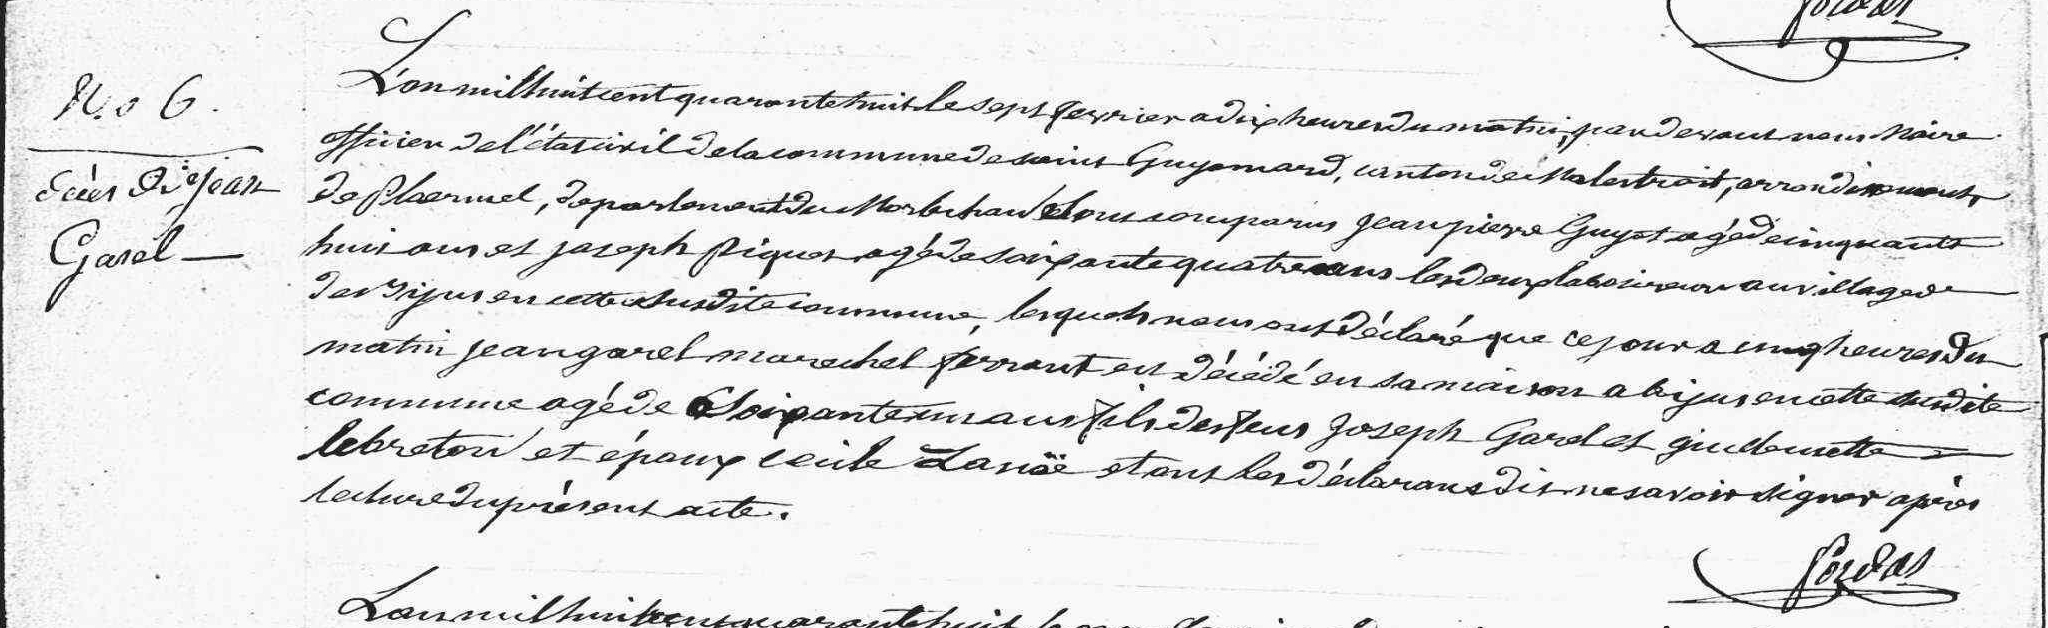 N.o 6.
décès De jean
Garel
L'an mil huit cent quarante huit le sept fevrier a dix heures du matin, par devant nous Maire
officier de l'état civil de la commune de saint Guyomard, canton de Malestroit, arrondissement
de Ploermel, departement du Morbihan ont comparus jean pierre Guyot agé de cinquante
huit ans et joseph Piquet agé de soixante quatre ans les deux laboureurs au village
en cette susdite commune, lesquels nous ont déclaré que ce jour a cinq heures du
matin jean garel marechel ferrant est décédé en sa maison a en cette susdite
commune agé de Soixante un ans fils des feus Joseph Garel et guillemette
lebreton et époux cecile Lanöe et ont les déclarans dit ne savoir signer après
lecture du présent acte.
L'an mil huit cent quarante huit le